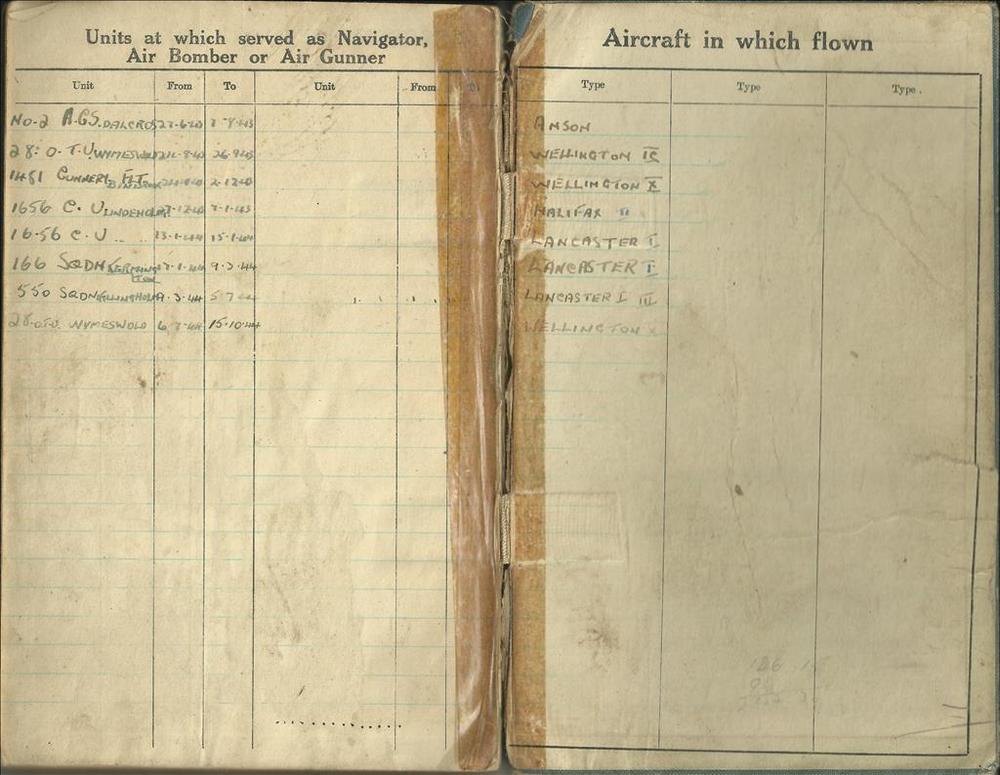 Units at which served as Navigator,
Air Bomber or Air Gunner
Unit From To Unit From
No. 2 A.G.S. DALCROSS
28: O.T.U. WYMESWOLD 26.9.43
1481 GUNNERY FLT. BINBROOK 2.12.43
1656 C.U LINDHOLME
16.56 C.U 13.1.44 15.1.44
166 SQDN KIRMING
TON 9.3.44
550 SQDN KILLINGHOLM 9.3.44 5 7 44
28.O.T.U. WYMESWOLD 6.7.44 15.10.44
Aircraft in which flown
Type Type Type.
ANSON
WELLINGTON IC
WELLINGTON X
HALIFAX II
LANCASTER I
LANCASTER I
LANCASTER I III
WELLINGTON X